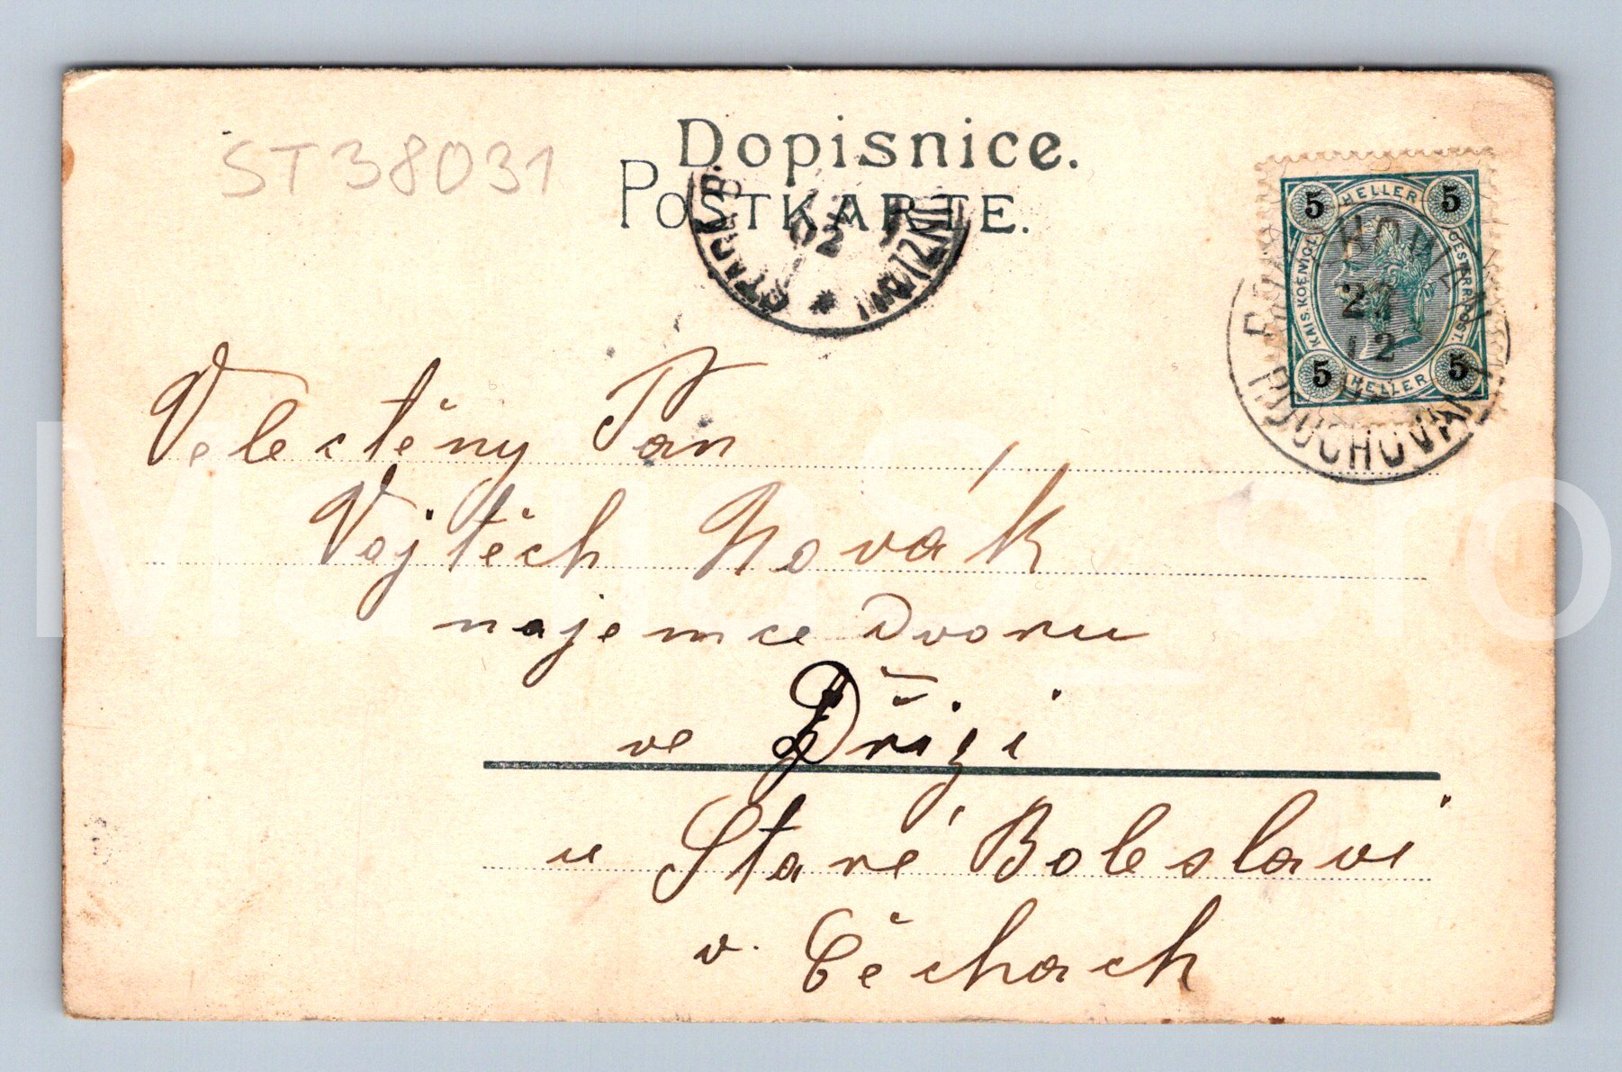 ST38031
Dopisnice.
POSTKARTE.
02
5 HELLER 5
KAIS. KOENIGL. OESTERR. POST.
5 HELLER 5
23
12
Velectěný Pan
Vojtěch Novák
najemce Dvoru
ve Dřízi
u Staré Boleslavi
v. Čechach